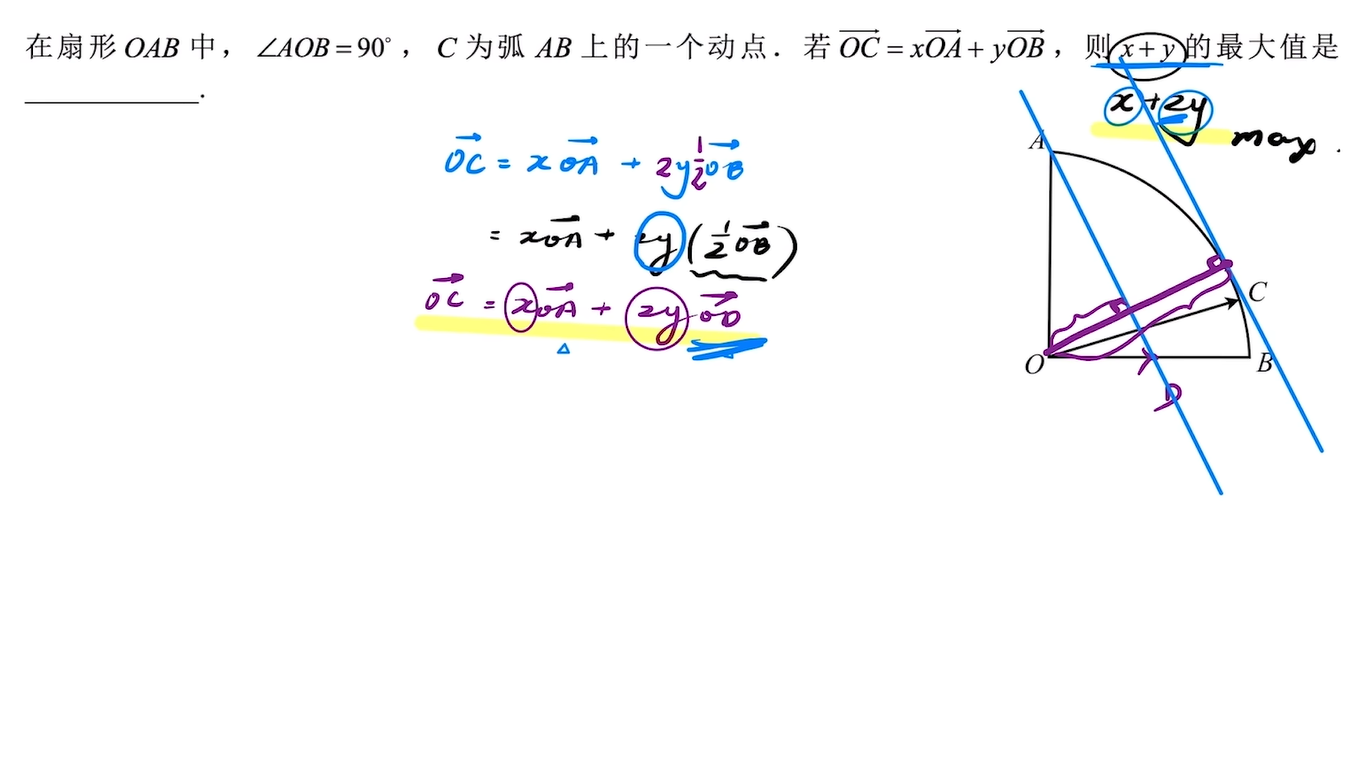 在扇形 OAB 中，∠AOB = 90°，C 为弧 AB 上的一个动点．若 $\overrightarrow{OC} = x\overrightarrow{OA} + y\overrightarrow{OB}$，则 x + y 的最大值是
____________．
x + 2y
max .
$\overrightarrow{OC} = x\overrightarrow{OA} + 2y\frac{1}{2}\overrightarrow{OB}$
$= x\overrightarrow{OA} + 2y(\frac{1}{2}\overrightarrow{OB})$
$\overrightarrow{OC} = x\overrightarrow{OA} + 2y\overrightarrow{OD}$
A
C
O
B
D